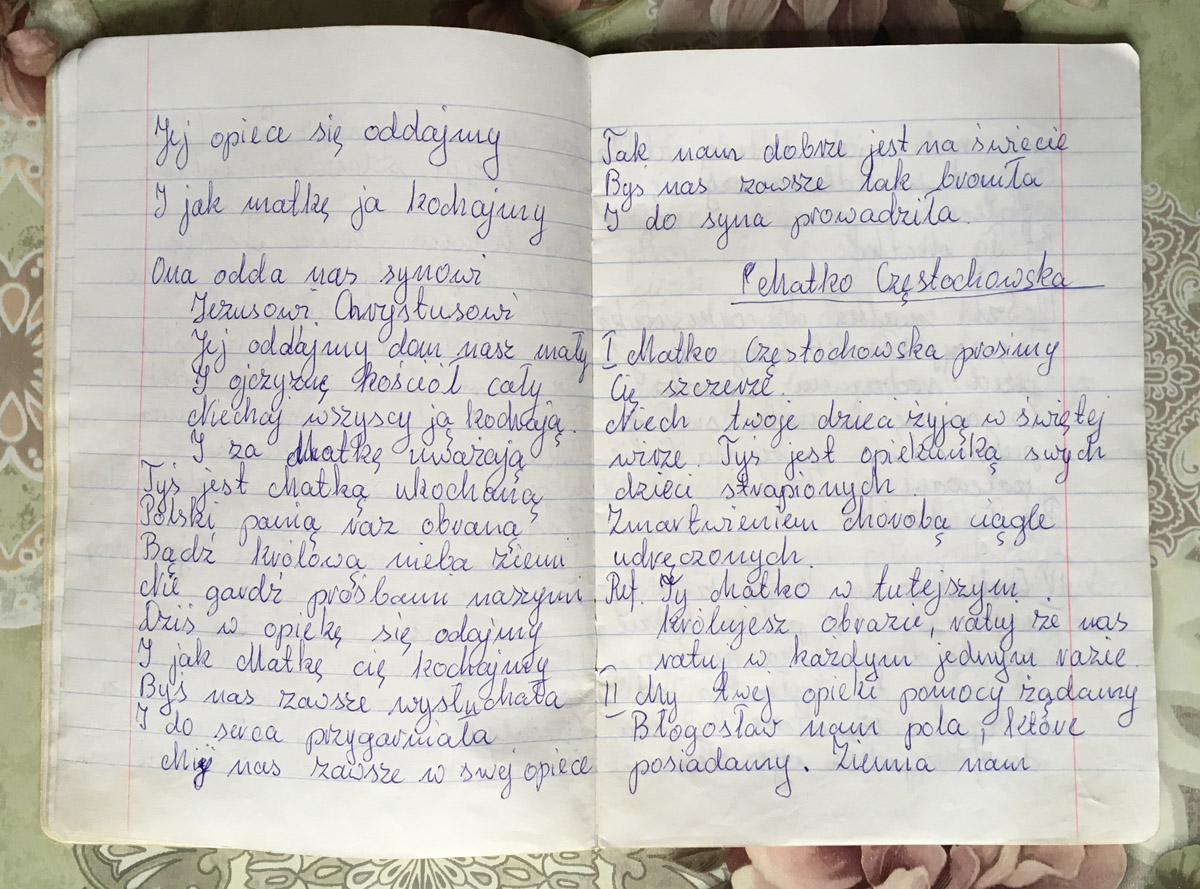 Jej opiece się oddajmy
I jak matkę ja kochajmy
Ona odda nas synowi
Jezusowi Chrystusowi
Jej oddajmy dom nasz mały
I ojczyznę kościół cały
Niechaj wszyscy ją kochają.
I za Matkę uważają
Tyś jest Matką ukochaną
Polski panią raz obraną
Bądź królowa nieba ziemi
Nie gardź prośbami naszymi
Dziś w opiekę się odajmy
I jak Matkę cię kochajmy
Byś nas zawsze wysłuchała
I do serca przygarniała
Miej nas zawsze w swej opiece
Tak nam dobrze jest na świecie
Byś nas zawsze tak broniła
I do syna prowadziła.
Matko Częstochowska
I Matko Częstochowska prosimy
Cię szczerze.
Niech twoje dzieci żyją w świętej
wirze. Tyś jest opiekunką swych
dzieci strapionych.
Zmartwieniem chorobą ciągle
udręczonych.
Ref. Ty Matko w tutejszym
królujesz obrazie, ratuj że nas
ratuj w każdym jednym razie.
II My twej opieki pomocy żądamy
Błogosław nam pola, które
posiadamy. Ziemia nam